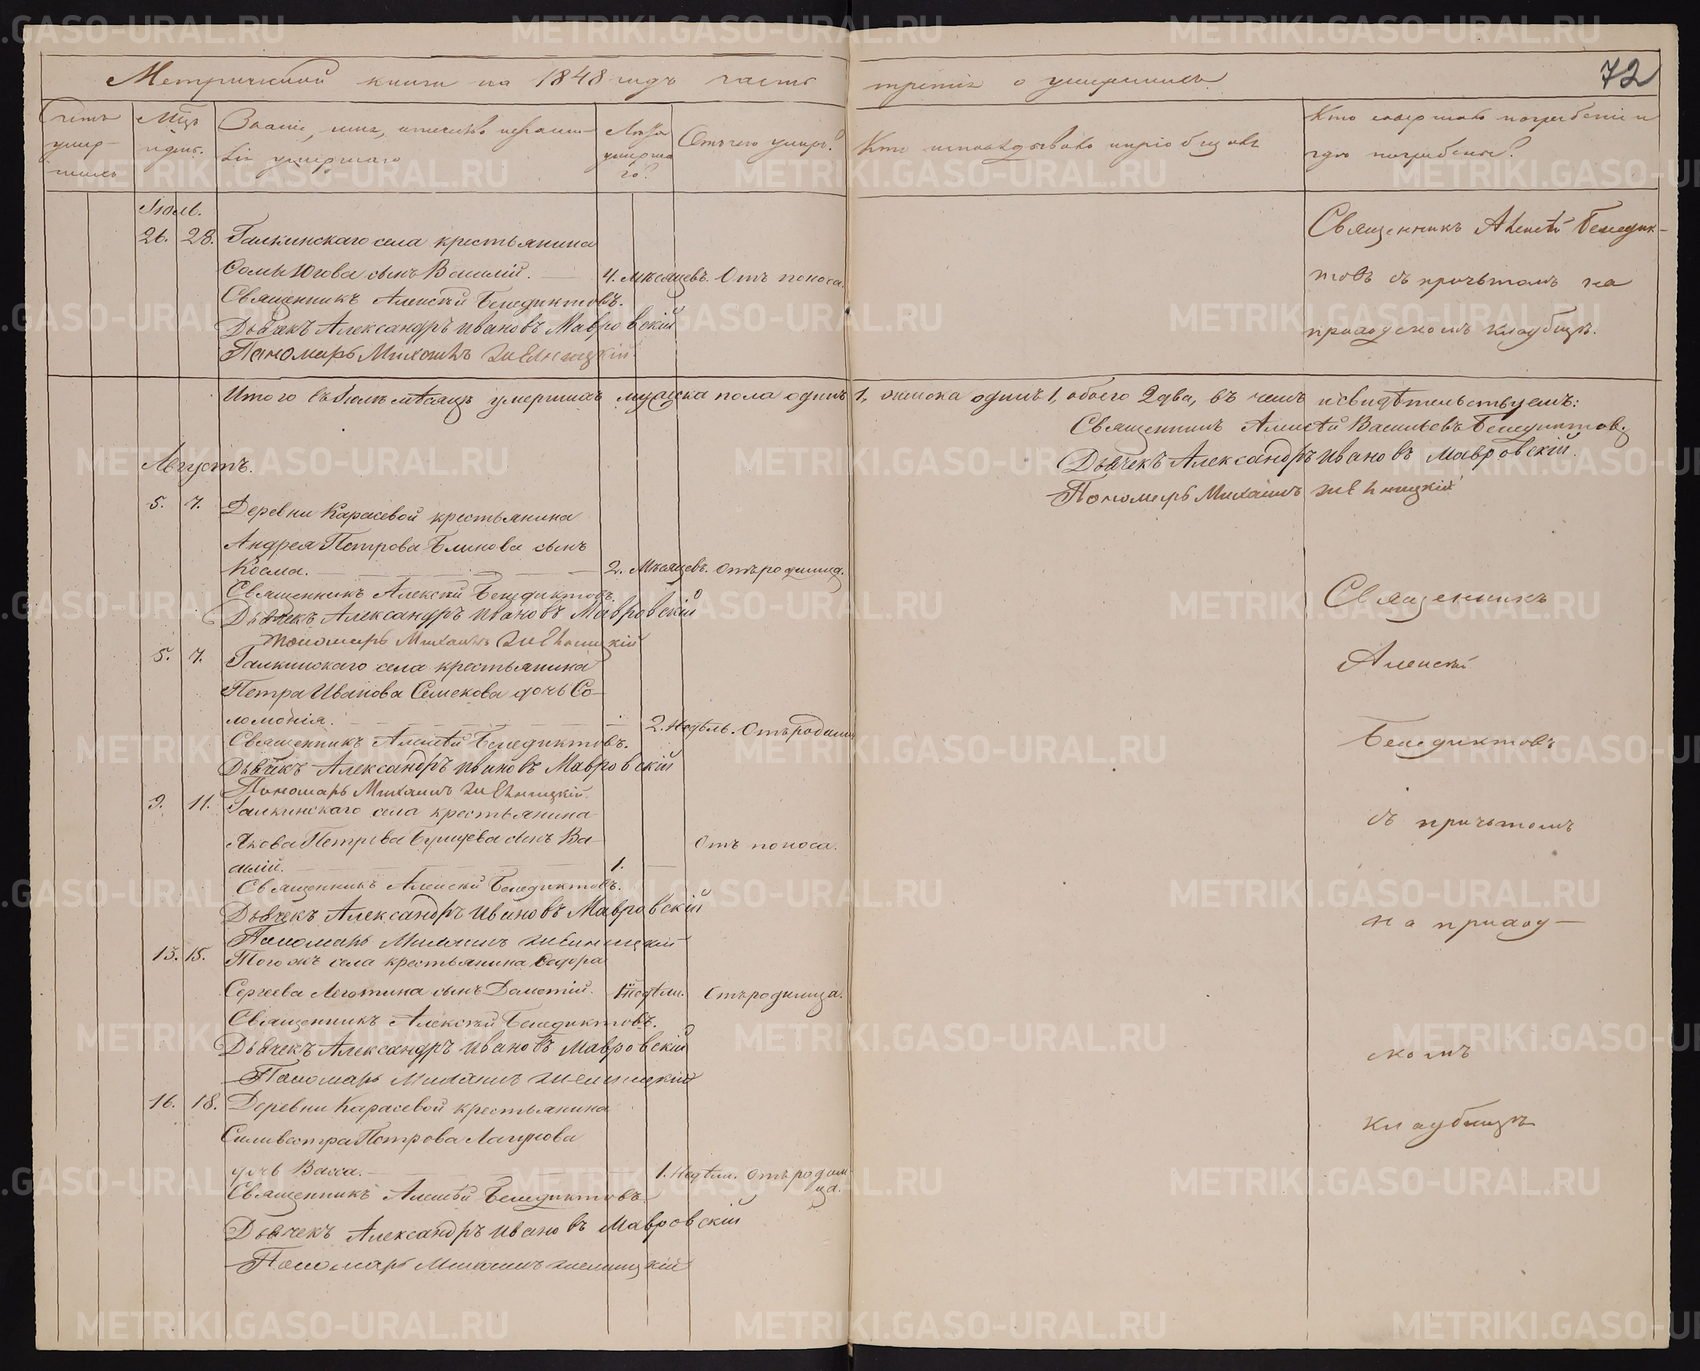 72
Метрической книги на 1848 годъ часть третія о умершихъ.
Счетъ умер-шихъ
Мцъ и день.
Званіе, имя, отчество и фамилія умершаго
Лѣта умерша го?
Отъ чего умеръ?
Кто исповѣдывалъ и пріобщалъ
Кто совершалъ погребеніе и гдѣ погребены?
Іюль.
26. 28. Галкинскаго села крестьянина
сынъ Василій. 4. мѣсяцевъ. Отъ поноса.
Священникъ Алексѣй Бенедиктовъ.
Дьячекъ Александръ Ивановъ Мавровскій
Пономарь Михаилъ
Священникъ Алексѣй Бенедик-
товъ съ причтомъ на
приходскомъ кладбищѣ.
Итого въ Іюлѣ мѣсяцѣ умершихъ мужеска пола одинъ 1, женска одинъ 1, обоего 2 два, въ чемъ и свидѣтельствуемъ:
Священникъ Алексѣй Васильевъ Бенедиктовъ
Дьячекъ Александръ Ивановъ Мавровскій.
Пономарь Михаилъ
Августъ.
5. 7. Деревни Карасевой крестьянина
Андрея Петрова Блинова сынъ
Косма. 2. Мѣсяцевъ. Отъ родимца.
Священникъ Алексѣй Бенедиктовъ.
Дьячекъ Александръ Ивановъ Мавровскій
Пономарь Михаилъ
5. 7. Галкинскаго села крестьянина
Петра Иванова Семекова дочь Со-
ломонія. 2. Недѣль. Отъ родимца
Священникъ Алексѣй Бенедиктовъ.
Дьячекъ Александръ Ивановъ Мавровскій
Пономарь Михаилъ
9. 11. Галкинскаго села крестьянина
Якова Петрова сынъ Ва-
силій. 1. Отъ поноса.
Священникъ Алексѣй Бенедиктовъ.
Дьячекъ Александръ Ивановъ Мавровскій
Пономарь Михаилъ
13. 15. Того жъ села крестьянина Федора
Сергеева Леготина сынъ Дометій. недѣли. Отъ родимца.
Священникъ Алексѣй Бенедиктовъ.
Дьячекъ Александръ Ивановъ Мавровскій
Пономарь Михаилъ
16. 18. Деревни Карасевой крестьянина
Силивестра Петрова Лагунова
дочь Васса. 1. Недѣли. Отъ родим-
ца.
Священникъ Алексѣй Бенедиктовъ.
Дьячекъ Александръ Ивановъ Мавровскій
Пономарь Михаилъ
Священникъ
Алексѣй
Бенедиктовъ
съ причтомъ
на приход-
скомъ
кладбищѣ
METRIKI.GASO-URAL.RU